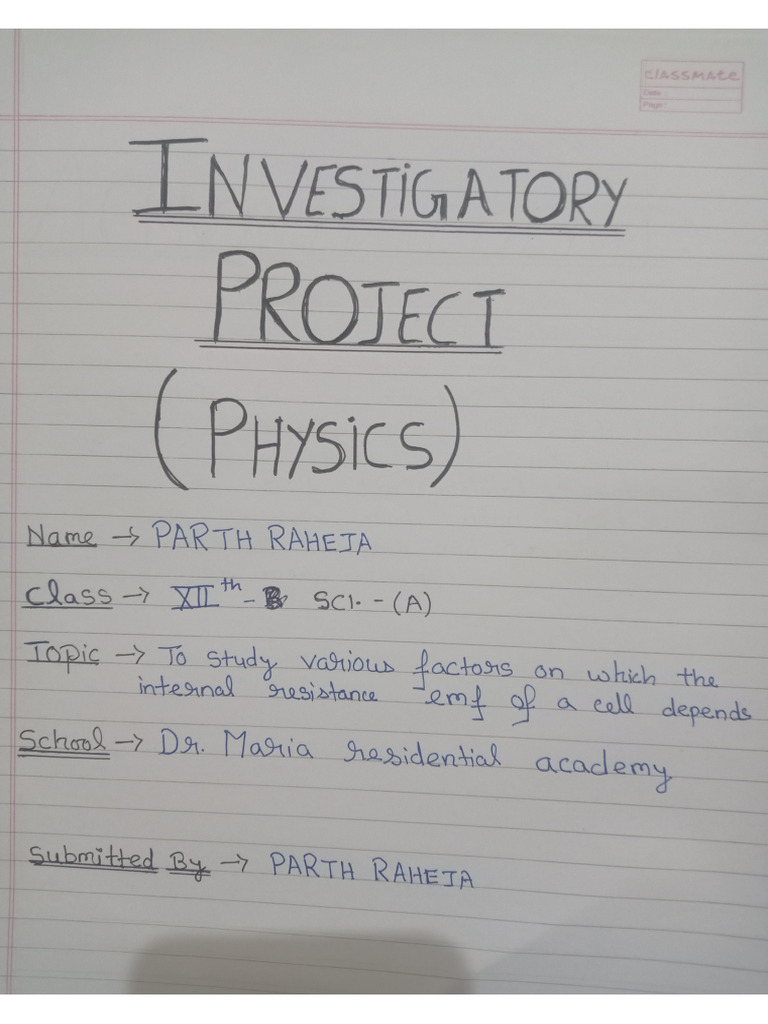 classmate
Date :
Page :
INVESTIGATORY
PROJECT
(PHYSICS)
Name → PARTH RAHEJA
Class → XIIth - SCI. - (A)
Topic → To study various factors on which the
internal resistance emf of a cell depends
School → Dr. Maria residential academy
Submitted By → PARTH RAHEJA